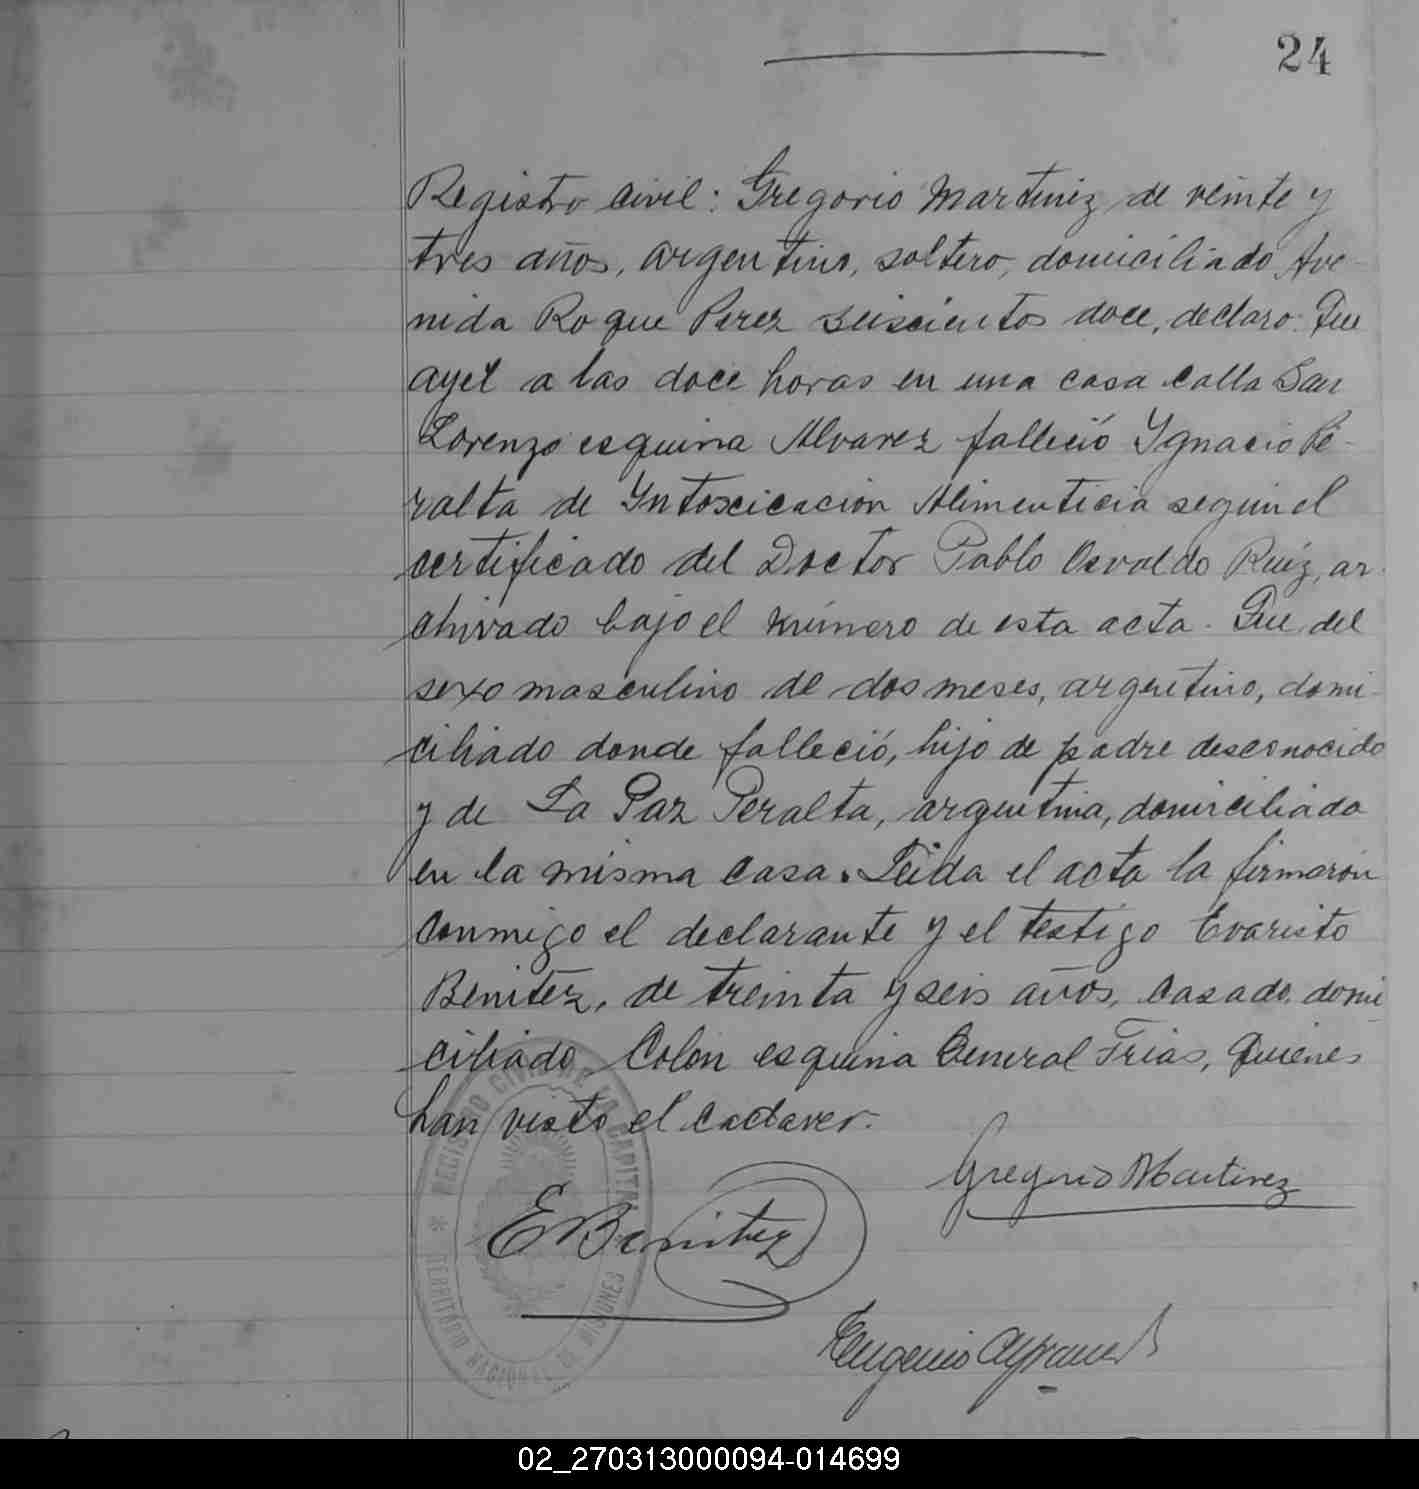 24
Registro civil: Gregorio Martinez de veinte y
tres años, argentino, soltero, domiciliado Ave-
nida Roque Perez seiscientos doce, declaro: Que
ayer a las doce horas en una casa calla San
Lorenzo esquina Alvarez falleció Ygnacio Pe-
ralta de Yntoxicacion Alimenticia segun el
certificado del Doctor Pablo Osvaldo Ruiz, ar-
chivado bajo el número de esta acta. Que, del
sexo masculino de dos meses, argentino, domi-
ciliado donde falleció, hijo de padre desconocido
y de La Paz Peralta, argentina, domiciliada
en la misma casa. Leida el acta la firmaron
conmigo el declarante y el testigo Evaristo
Benitez, de treinta y seis años, casado, domi-
ciliado Colon esquina General Frias, quienes
han visto el cadaver.
Gregorio Martinez
E Benitez
Eugenio
REGISTRO CIVIL DE LA CAPITAL
TERRITORIO NACIONAL DE MISIONES
02_270313000094-014699